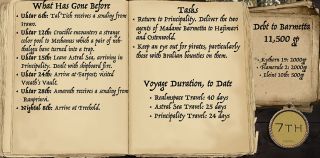 What Has Gone Before
• Uktar 6th: Tal'Tish receives a sending from
• Uktar 12th: Crucible encounters a strange
color pool to Mechanus which a pair of
have been turned into a trap.
• Uktar 15th: Leave Astral Sea, arriving in
Principality. Dealt with shipboard fire.
• Uktar 24th: Arrive at Farpost; visited
Vraath's Vault.
• Uktar 28th: Amaroth receives a sending from
• Nightal 8th: Arrive at Treehold.
Tasks
• Return to Principality. Deliver the two
agents of Madame Barmetta to Hajimari
and Ostenwold.
• Keep an eye out for pirates, particularly
those with Bralian bounties on them.
Voyage Duration, to Date
• Realmspace Travel: 40 days
• Astral Sea Travel: 25 days
• Principality Travel: 24 days
Debt to Barmetta
11,500 gp
• Kythorn 19: 1000g
• Flamerule 2: 1000g
• Eleint 10th: 500g
7TH